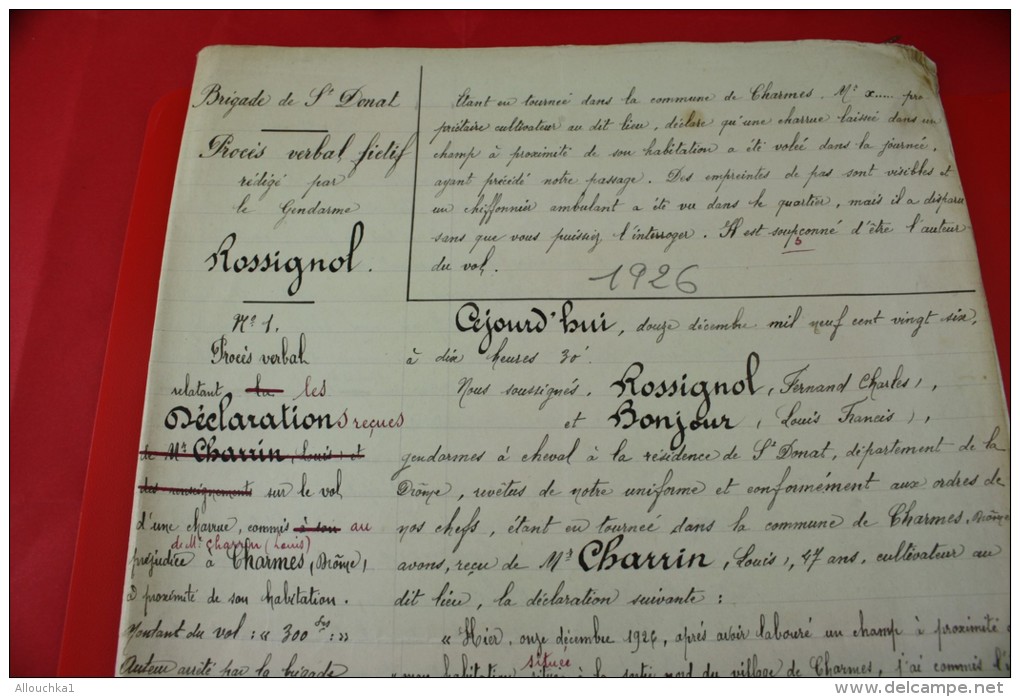 Brigade de St Donat
Procès verbal fictif
rédigé par
le Gendarme
Rossignol.
No 1.
Procès verbal
relatant la les
Déclarations reçues
de Mr Charrin (Louis) et
des renseignements sur le vol
d'une charrue, commis à son au
de Mr Charrin (Louis)
préjudice à Charmes, (Drôme),
à proximité de son habitation.
Montant du vol : « 300 frs : »
Auteur arrêté par la brigade
Etant en tournée dans la commune de Charmes. Mr x..... pro
priétaire cultivateur au dit lieu, déclare qu'une charrue laissée dans un
champ à proximité de son habitation a été volée dans la journée,
ayant précédé notre passage. Des empreintes de pas sont visibles et
un chiffonnier ambulant a été vu dans le quartier, mais il a disparu
sans que vous puissiez l'interroger. Il est soupçonné d'être l'auteur
du vol.
1926
Cejourd'hui, douze décembre mil neuf cent vingt six,
à dix heures 30'.
Nous soussignés, Rossignol, (Fernand Charles),
et Bonjour, (Louis Francis),
gendarmes à cheval à la résidence de St Donat, département de la
Drôme, revêtus de notre uniforme et conformément aux ordres de
nos chefs, étant en tournée dans la commune de Charmes, Drôme
avons, reçu de Mr Charrin, (Louis), 47 ans, cultivateur au
dit lieu, la déclaration suivante :
« Hier, onze décembre 1926, après avoir labouré un champ à proximité
située
mon habitation située à la sortie nord du village de Charmes, j'ai commis l'
Allouchka1
www.delcampe.net